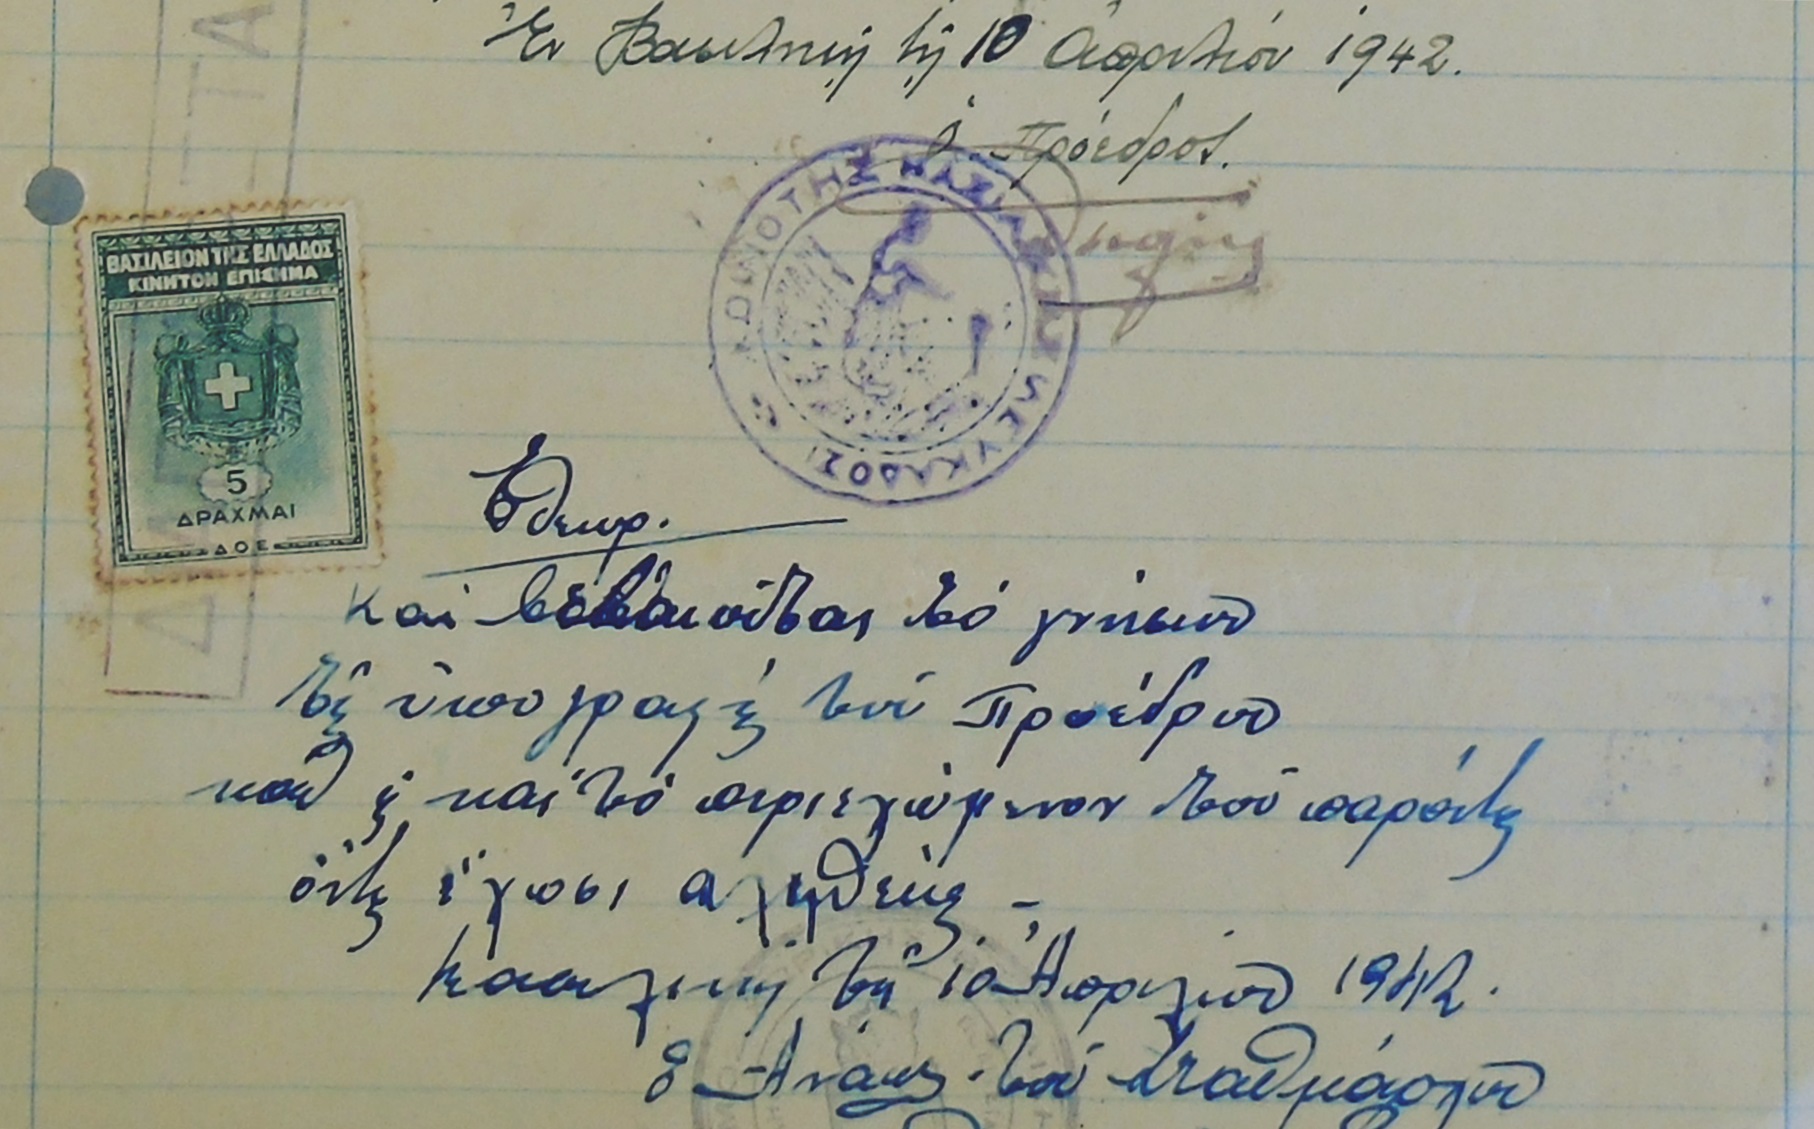 Ἐν Βασιλικῇ τῇ 10 Ἀπριλίου 1942.
ὁ Πρόεδρος.
ΚΟΙΝΟΤΗΣ ΛΕΥΚΑΔΟΣ
ΒΑΣΙΛΕΙΟΝ ΤΗΣ ΕΛΛΑΔΟΣ
ΚΙΝΗΤΟΝ ΕΠΙΣΗΜΑ
5
ΔΡΑΧΜΑΙ
ΔΟΕ
Ἐθεωρ.
καὶ βεβαιοῦται τὸ γνήσιον
τῆς ὑπογραφῆς τοῦ Προέδρου
καθ' ἃ καὶ τὸ περιεχώμενον τοῦ παρόντος
ὅτι ἔχωσι ἀληθείας –
Βασιλικῇ τῇ 10 Ἀπριλίου 1942.
Ὁ τοῦ Σταθμάρχου